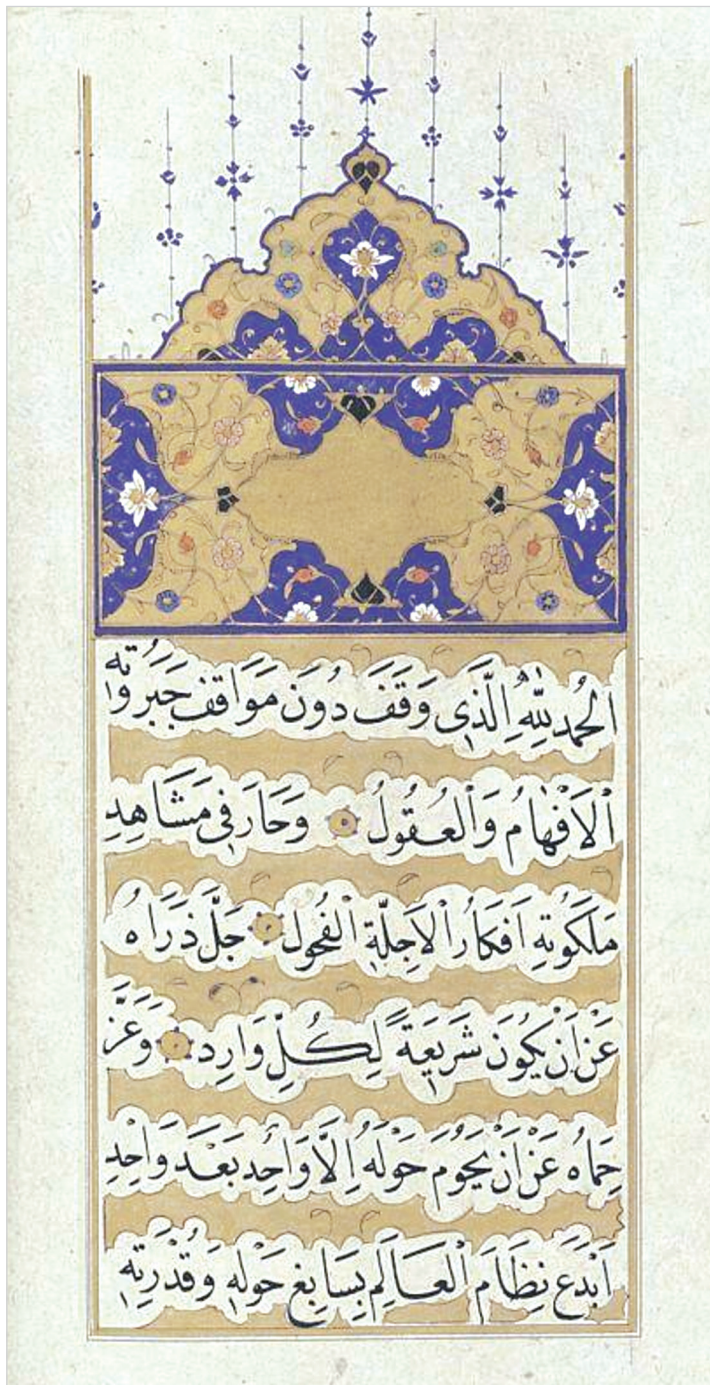 الْحَمْدُ لِلّٰهِ الَّذِى وَقَفَ دُونَ مَوَاقِفِ جَبَرُوتِهِ
اْلاَفْهَامُ وَالْعُقُولُ وَحَارَ فِى مَشَاهِدِ
مَلَكُوتِهِ اَفْكَارُ اْلاَجِلَّةِ الْفُحُولِ جَلَّ ذَرَاهُ
عَنْ اَنْ يَكُونَ شَرِيعَةً لِكُلِّ وَارِدٍ وَعَزَّ
حِمَاهُ عَنْ اَنْ يَحُومَ حَوْلَهُ اِلَّا وَاحِدٌ بَعْدَ وَاحِدٍ
اَبْدَعَ نِظَامَ الْعَالَمِ بِسَابِغِ حَوْلِهِ وَقُدْرَتِهِ